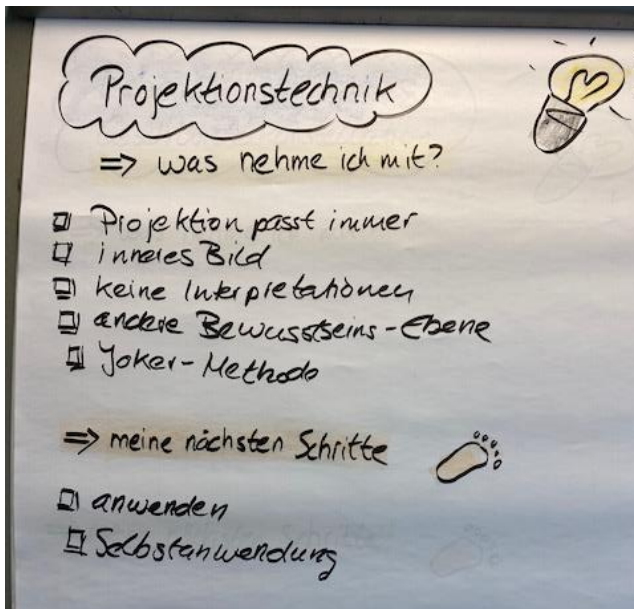 Projektionstechnik
=> was nehme ich mit?
Projektion passt immer
inneres Bild
keine Interpretationen
andere Bewusstseins-Ebene
Joker-Methode
=> meine nächsten Schritte
anwenden
Selbstanwendung